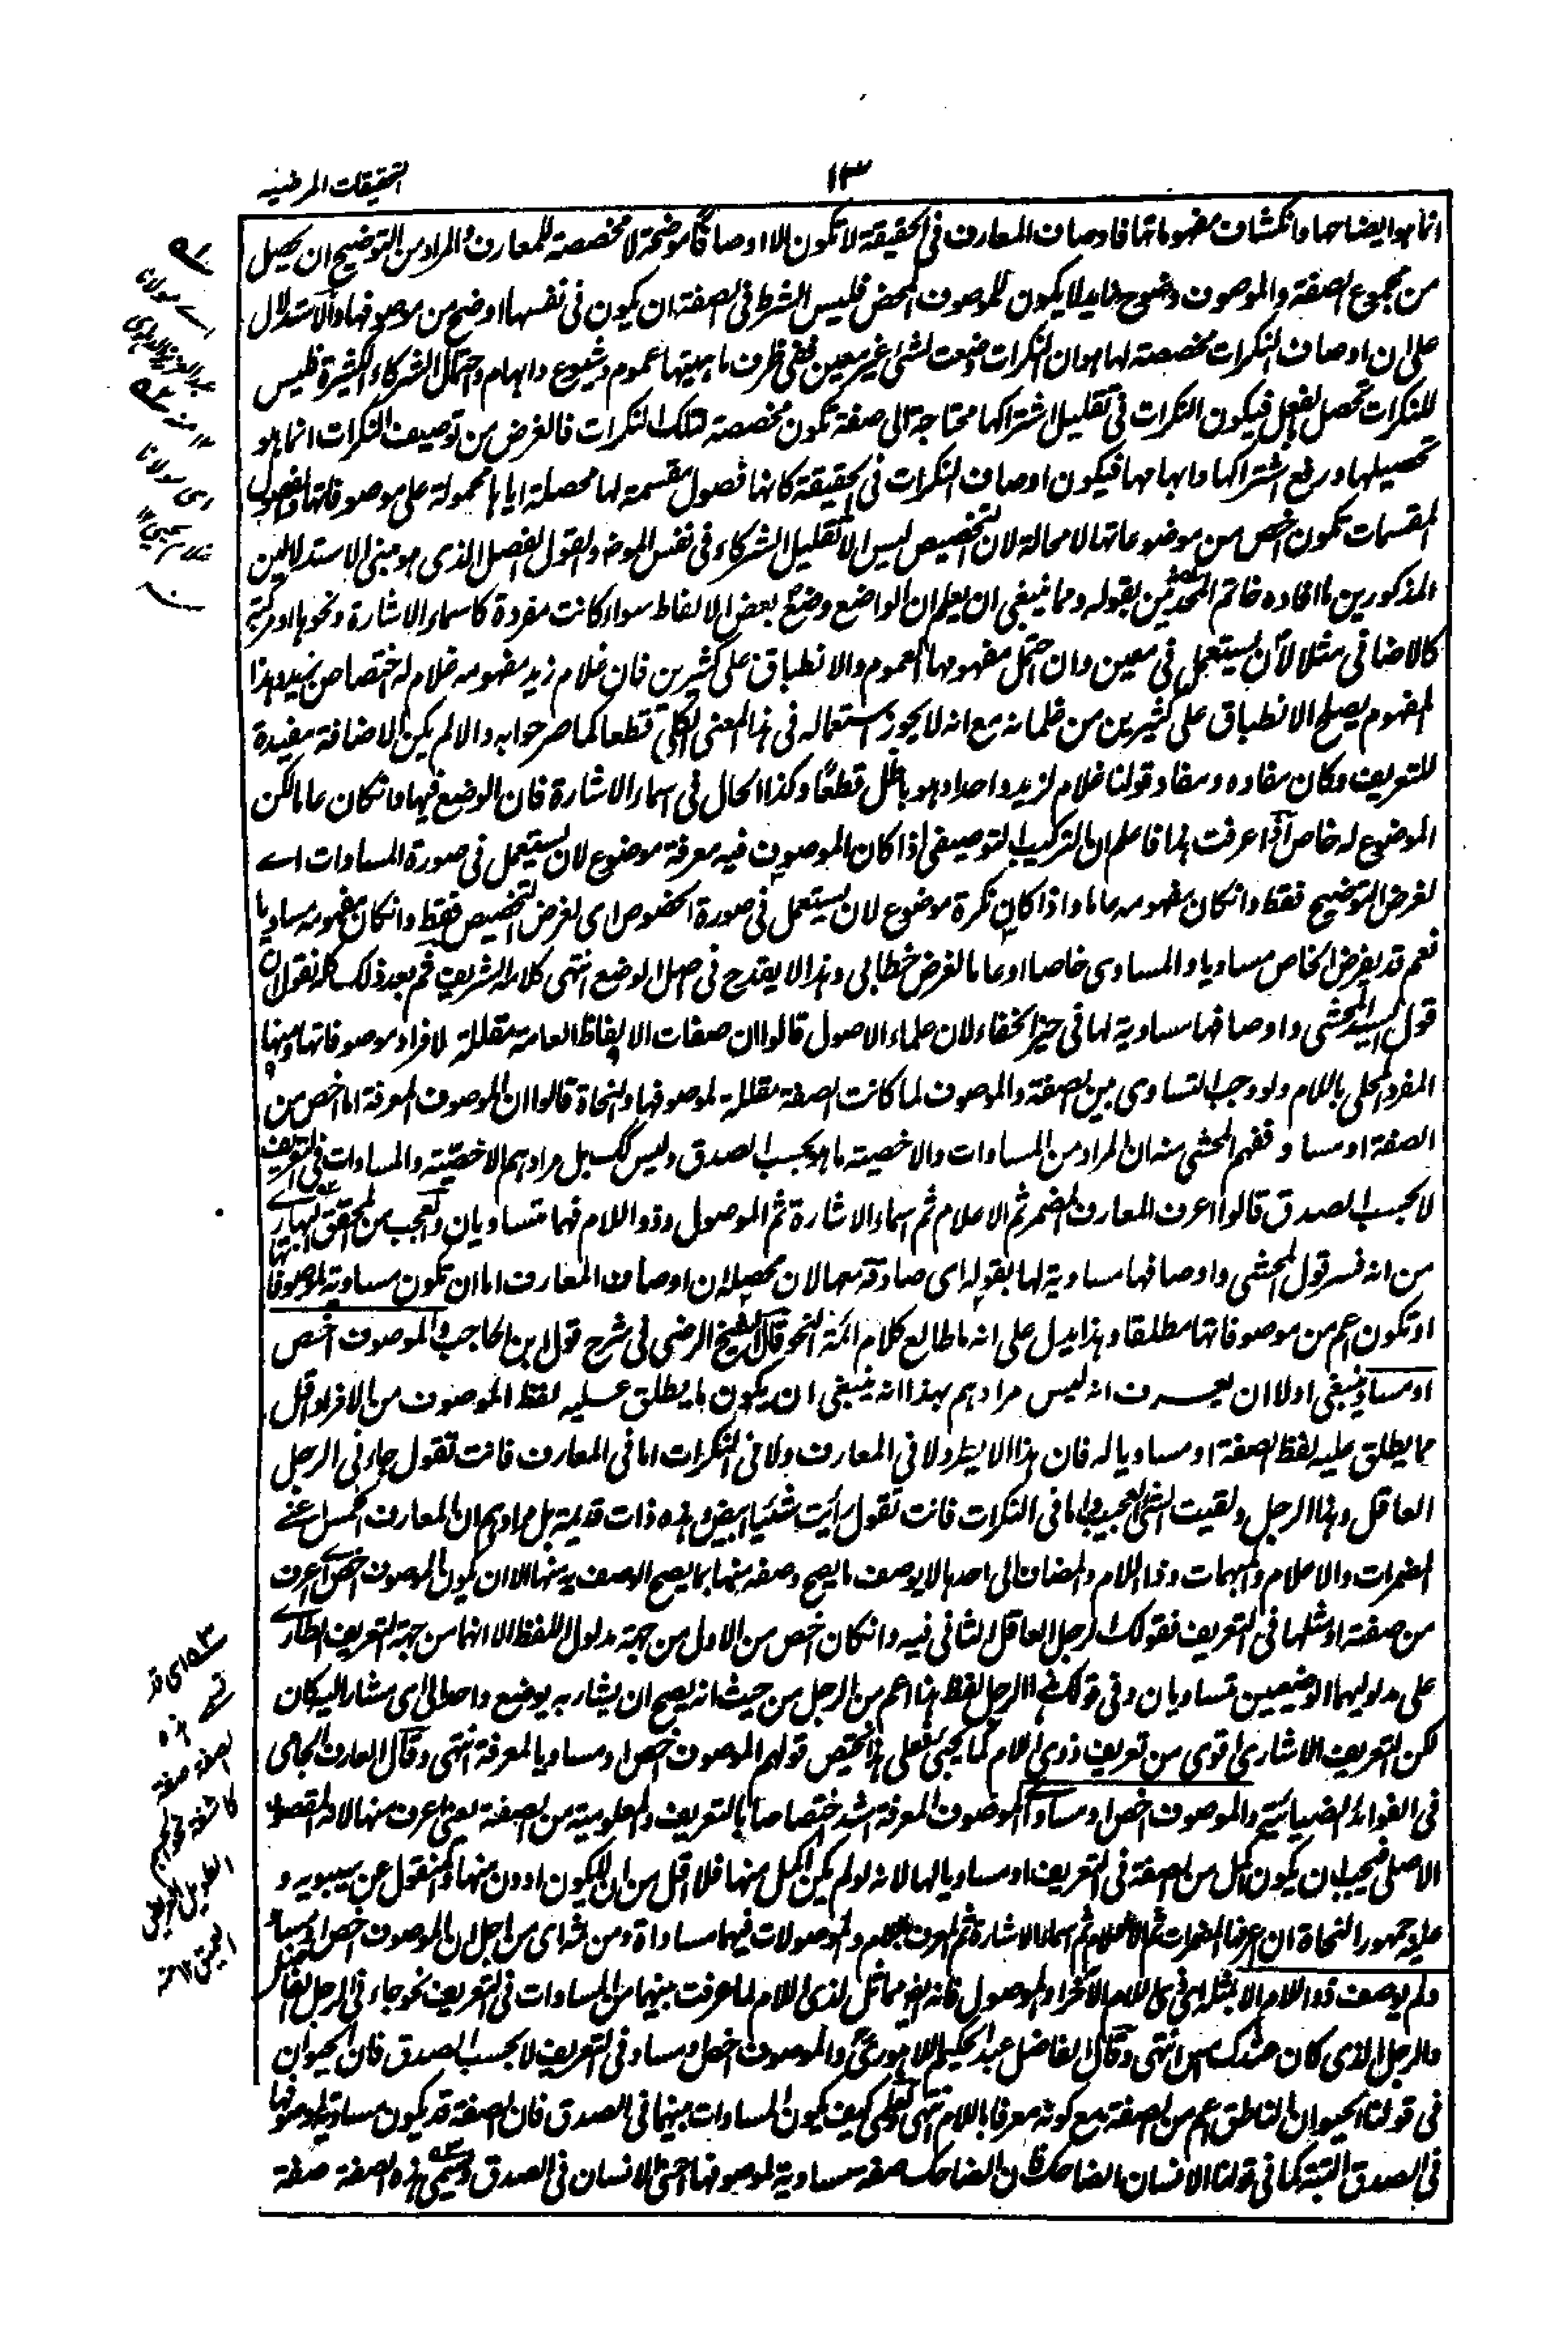 ١٣
التحقيقات المرضيه
انما هو ايضاحها وانكشاف مفهوماتها فاوصاف المعارف فى الحقيقة لا تكون الا اوصافا موضحة لا مخصصة للمعارف والمراد من التوضيح ان يحصل
من مجموع الصفة والموصوف وضوح مايد لا يكون للموصوف المحض فليس الشرط فى الصفة ان يكون فى نفسها اوضح من موصوفها والاستدلال
على ان اوصاف النكرات مخصصة لها هو ان النكرات وضعت لشئ غير معين ففى ظرف ماهيتها عموم وشيوع وابهام واحتمال الشركاء الكثيرة فليس
للنكرات تحصل بفعل فيكون النكرات فى تقليل اشتراكها محتاجة الى صفة تكون مخصصة لتلك النكرات فالغرض من توصيف النكرات انما هو
تحصيلها ورفع اشتراكها وابهامها فيكون اوصاف النكرات فى الحقيقة كانها فصول مقسمة لها محصلة اياها محمولة على موصوفاتها والفصول
المقسمات تكون اخص من موضوعاتها لا محالة لان التخصيص ليس الا تقليل الشركاء فى نفس الموضع والقول الفصل الذى هو مبنى الاستدلالين
المذكورين ما افاده خاتم المحدثين بقوله ومما ينبغى ان يعلم ان الواضع وضع بعض الالفاظ سواء كانت مفردة كاسماء الاشارة ونحوها او مركبة
كالاضافى مثلا لان يستعمل فى معين وان احتمل مفهومها العموم والانطباق على كثيرين فان غلام زيد مفهومه غلام له اختصاص بزيد وهذا
المفهوم يصلح الانطباق على كثيرين من غلمانه مع انه لا يجوز استعماله فى هذا المعنى الكلى قطعا كما صرحوا به والا لم يكن الاضافة مفيدة
للتعريف وكان مفاده ومفاد قولنا غلام لزيد واحدا وهو باطل قطعا وكذا الحال فى اسماء الاشارة فان الوضع فيها وانكان عاما لكن
الموضوع له خاص اذا عرفت هذا فاعلم ان التركيب التوصيفى اذا كان الموصوف فيه معرفة موضوع لان يستعمل فى صورة المساوات اے
لغرض التوضيح فقط وانكان مفهومه عاما واذا كان نكرة موضوع لان يستعمل فى صورة الخصوص اى لغرض التخصيص فقط وانكان مفهومه مساويا
نعم قد يفرض الخاص مساويا والمساوى خاصا او عاما لغرض خطابى وهذا لا يقدح فى اصل الوضع انتهى كلامه الشريف ثم بعد ذلك كله نقول ان
قول السيد المحشى واوصافها مساوية لها فى حيز الخفاء لان علماء الاصول قالوا ان صفات الالفاظ العامة مقللة لافراد موصوفاتها ومنها
المفرد المحلى باللام ولو وجب التساوى بين الصفة والموصوف لما كانت الصفة مقللة لموصوفها والنحاة قالوا ان الموصوف المعرفة اما اخص من
الصفة او مساو ففهم المحشى منه ان المراد من المساوات والاخصية ما هو بحسب الصدق وليس كك بل مرادهم الاخصية والمساوات فى التعريف
لا بحسب الصدق قالوا اعرف المعارف المضمر ثم الاعلام ثم اسماء الاشارة ثم الموصول وذو اللام فهما متساويان والعجب من المحقق البهارے
من انه فسر قول المحشى واوصافها مساوية لها بقوله اى صادقة معها لان محصله ان اوصاف المعارف اما ان تكون مساوية لموصوفاتها
او تكون اعم من موصوفاتها مطلقا وهذا يدل على انه ما طالع كلام ائمة النحو قال الشيخ الرضى فى شرح قول ابن الحاجب والموصوف اخص
او مساو ينبغى اولا ان يعرف انه ليس مرادهم بهذا انه ينبغى ان يكون ما يطلق عليه لفظ الموصوف من الافراد اقل
مما يطلق عليه لفظ الصفة او مساويا له فان هذا لا يطرد لا فى المعارف ولا فى النكرات اما فى المعارف فانت تقول جاءنى الرجل
العاقل وهذا الرجل ولقيت الشئ العجيب واما فى النكرات فانت تقول رأيت شيئا ابيض وهذه ذات قديمة بل مرادهم ان المعارف الخمس اعنے
المضمرات والاعلام والمبهمات وذا اللام والمضاف الى احدها لا يوصف ما يصح وصفه منها بما يصح الوصف به منها الا ان يكون الموصوف اخص اى اعرف
من صفته او مثلها فى التعريف فقولك الرجل العاقل الثانى فيه وانكان اخص من الاول من جهة مدلول اللفظ الا انهما من جهة التعريف الطارے
على مدلوليهما الوضعيين تساويان وفى قولك هذا الرجل لفظ هذا اعم من الرجل من حيث انه يصح ان يشار به بوضع واحد الى اى مشار اليه كان
لكن التعريف الاشارى اقوى من تعريف ذوى اللام كما يجيئ فعلى هذا يختص قولهم الموصوف اخص او مساو بالمعرفة انتهى وقال العارف الجامى
فى الفوائد الضيائية والموصوف اخص او مساو اى الموصوف المعرفة اشد اختصاصا بالتعريف والمعلومية من الصفة يعنى اعرف منها لانه المقصود
الاصلى فيجب ان يكون اكمل من الصفة فى التعريف او مساويا لها لانه لو لم يكن اكمل منها فلا اقل من ان لا يكون ادون منها والمنقول عن سيبويه و
عليه جمهور النحاة ان اعرفها المضمرات ثم الاعلام ثم اسماء الاشارة ثم المعرف باللام والموصولات فبينهما مساواة ومن ثم اى من اجل ان الموصوف اخص او مساو
ولم يوصف ذو اللام الا بمثله اى ذى اللام الآخر او الموصول فانه ايضا مماثل لذى اللام لما عرفت بينهما من المساوات فى التعريف نحو جاءنى الرجل الفاضل
والرجل الذى كان عندك امس انتهى وقال الفاضل عبد الحكيم اللاهورى والموصوف اخص او مساو فى التعريف لا بحسب الصدق فان الحيوان
فى قولنا الحيوان الناطق اعم من الصفة مع كونه معرفا باللام انتهى كيف يكون المساوات بينهما فى الصدق فان الصفة قد يكون مساوية لموصوفها
فى الصدق البتة كما فى قولنا الانسان الضاحك فان الضاحك صفة مساوية لموصوفها اعنى الانسان فى الصدق وتسمى هذه الصفة صفة
اے مولانا
رى مولانا
غلام يحيى